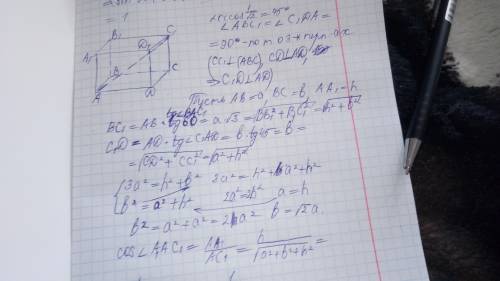 = 1
B₁
C₁
A₁
D₁
B
C
A
D
arccos 1/√2 = 45°
∠ABC₁ = ∠C₁DA =
= 90° - по т. о 3-х перп. ах
(CC₁ ⊥ (ABC), CD ⊥ AD,
⇒ C₁D ⊥ AD)
Пусть AB = a, BC = b, AA₁ = h
BC₁ = AB · tg 60 = a√3 = √(BB₁² + B₁C₁²) = √(h² + b²)
C₁D = AD · tg∠C₁AD = b · tg 45 = b =
= √(CD² + CC₁²) = √(a² + h²)
{ 3a² = h² + b² 2a² = h² + a² + h²
b² = a² + h² 2a² = 2h² a = h
b² = a² + a² = 2a² b = √2 a.
cos∠A₁AC₁ = AA₁/AC₁ = h/√(a² + b² + h²) =